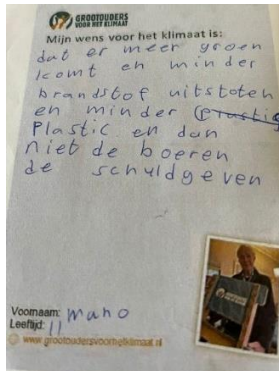 GROOTOUDERS
VOOR HET KLIMAAT
Mijn wens voor het klimaat is:
dat er meer groen
komt en minder
brandstof uitstoten
en minder plastic
Plastic en dan
niet de boeren
de schuldgeven
Voornaam: Maho
Leeftijd: 11
www.grootoudersvoorhetklimaat.nl